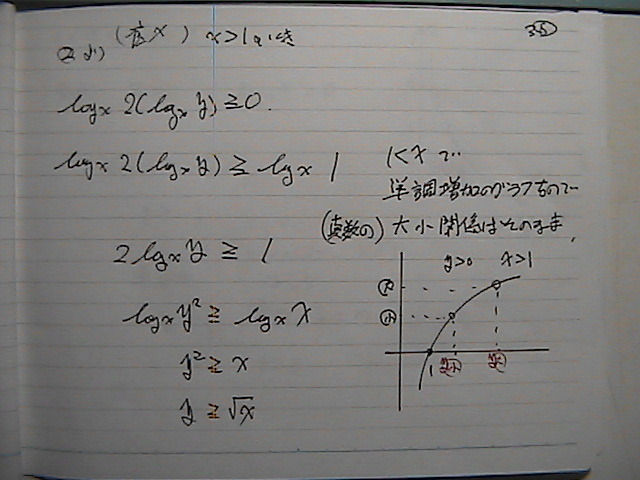 (底x) x>1のとき
35
log_x 2(log_x y) ≧ 0.
log_x 2(log_x y) ≧ log_x 1
1<x で
単調増加のグラフなので
(真数の) 大小関係はそのまま,
2 log_x y ≧ 1
log_x y² ≧ log_x x
y² ≧ x
y ≧ √x
y>0 x>1
大
小
1 小 大